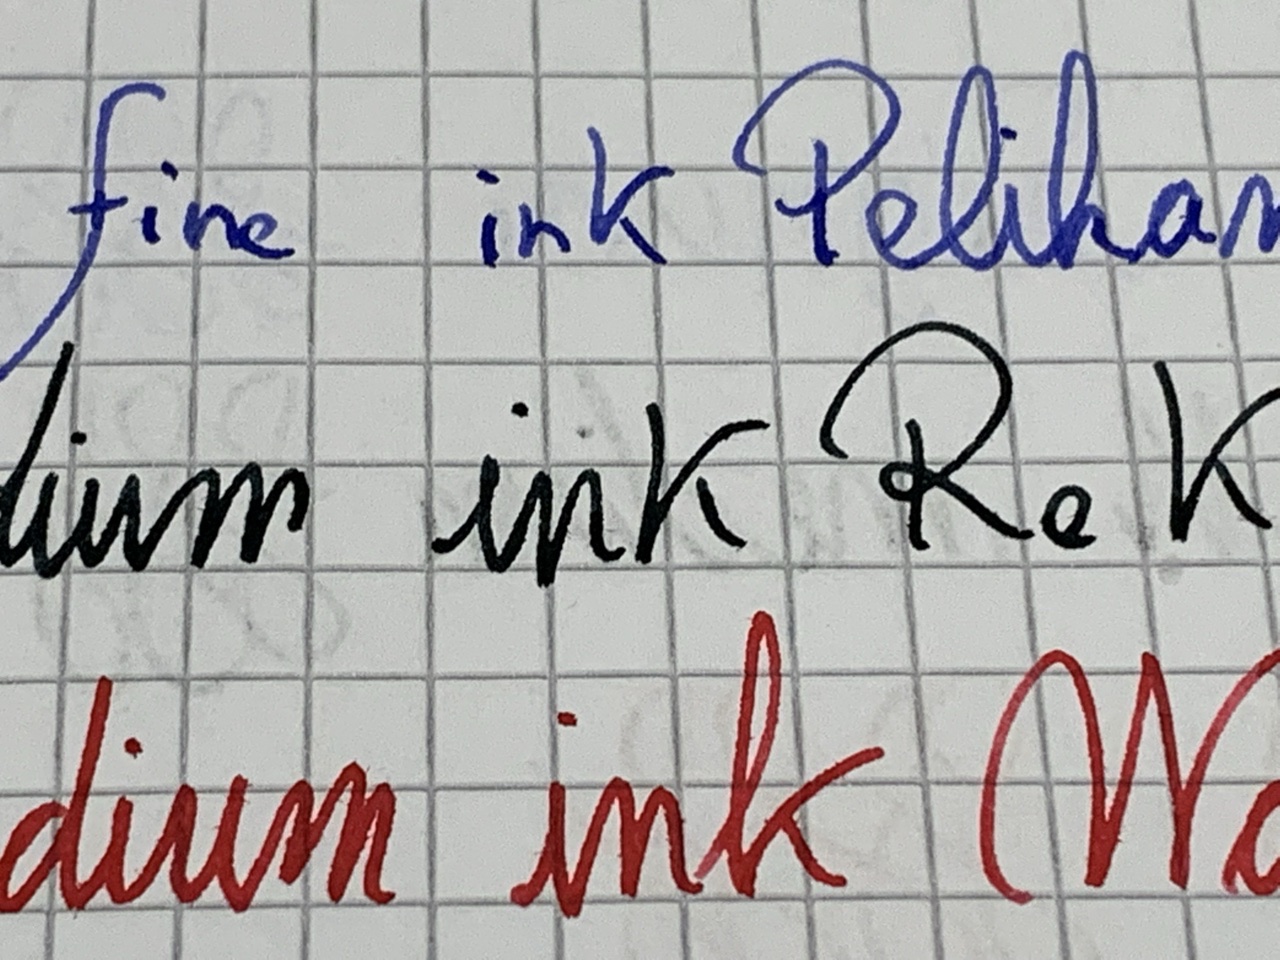 fine ink Pelikan
dium ink R&K
dium ink Wa